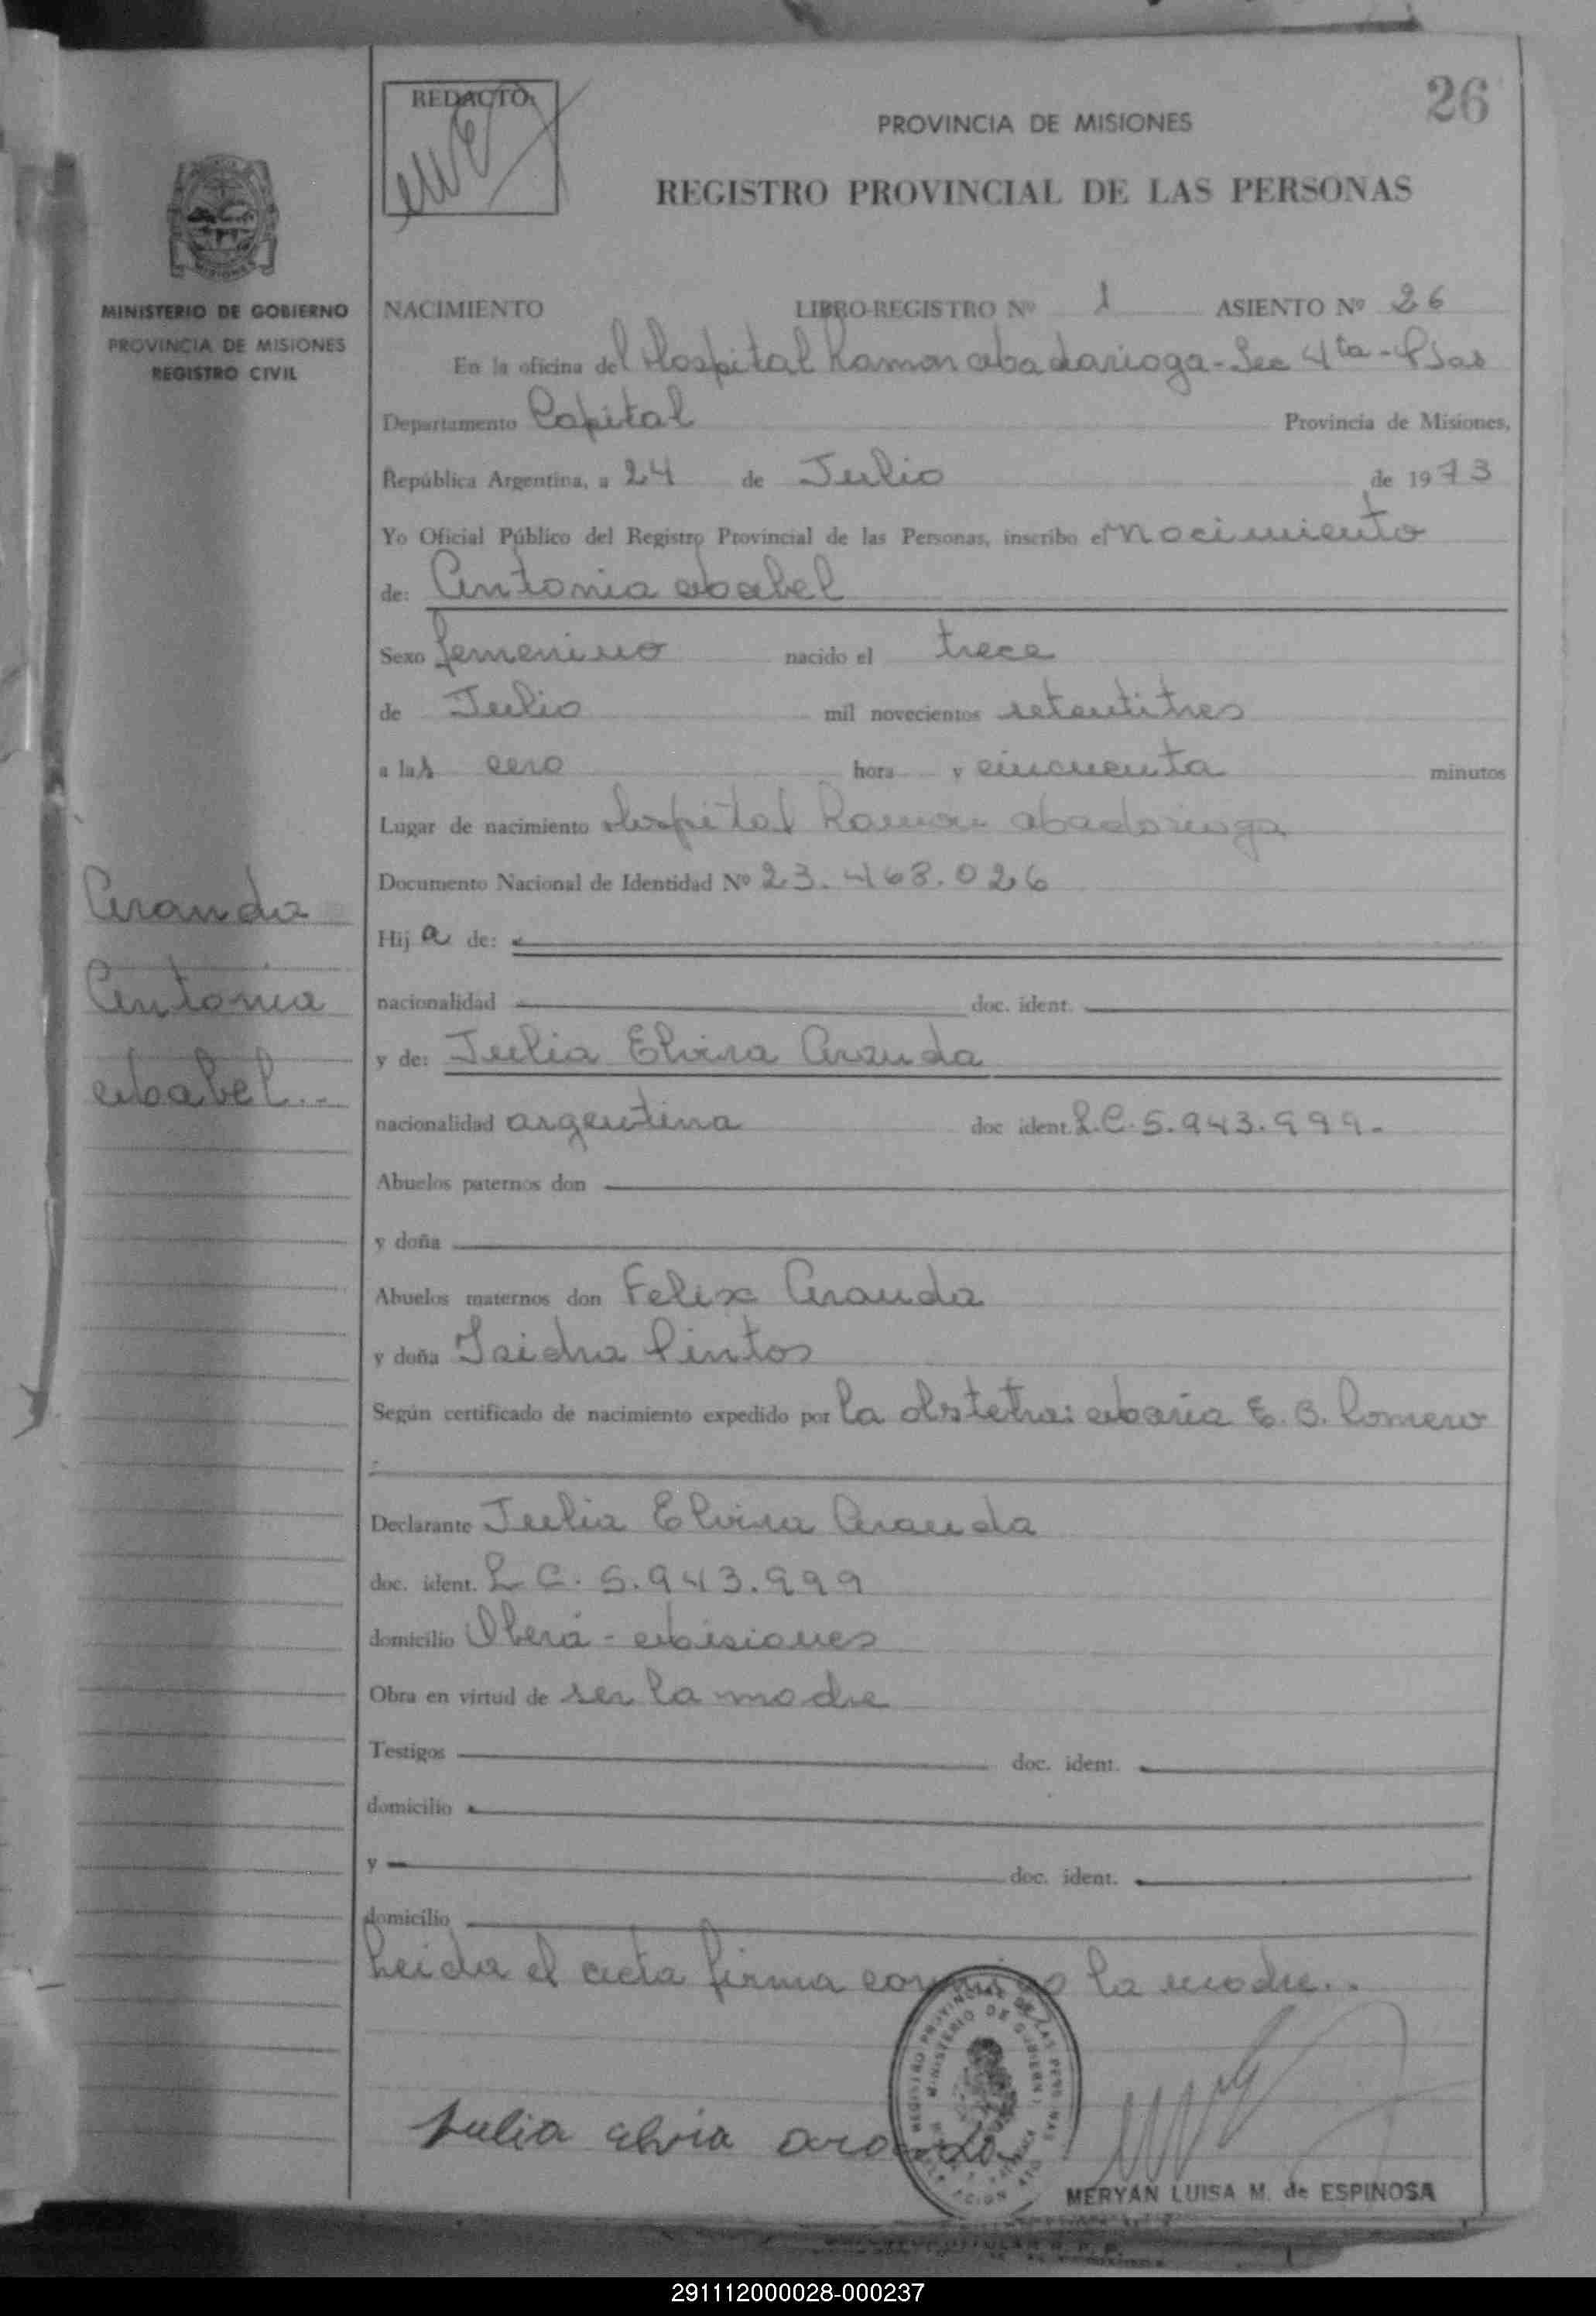 REDACTO:
26
PROVINCIA DE MISIONES
REGISTRO PROVINCIAL DE LAS PERSONAS
MISIONES
MINISTERIO DE GOBIERNO
PROVINCIA DE MISIONES
REGISTRO CIVIL
NACIMIENTO LIBRO-REGISTRO Nº 1 ASIENTO Nº 26
En la oficina del Hospital Ramon Abadarioga - Sec 4ta - Psas
Departamento Capital Provincia de Misiones,
República Argentina, a 24 de Julio de 1973
Yo Oficial Público del Registro Provincial de las Personas, inscribo el Nacimiento
de: Antonia Mabel
Sexo femenino nacido el trece
de Julio mil novecientos setentitres
a las cero hora y cincuenta minutos
Lugar de nacimiento Hospital Ramon Abadarioga
Documento Nacional de Identidad Nº 23.468.026
Hija de:
nacionalidad doc. ident.
y de: Julia Elvira Aranda
nacionalidad argentina doc ident. L.C. 5.943.999.-
Abuelos paternos don
y doña
Abuelos maternos don Felix Aranda
y doña Isidra Pintos
Según certificado de nacimiento expedido por la obstetra: Maria E. B. Romero
Declarante Julia Elvira Aranda
doc. ident. L C. 5.943.999
domicilio Oberá - Misiones
Obra en virtud de ser la madre
Testigos doc. ident.
domicilio
y doc. ident.
domicilio
Leida el acta firma conmigo la madre..
Aranda
Antonia
Mabel..
REGISTRO PROVINCIAL DE LAS PERSONAS
MINISTERIO DE GOBIERNO
Julia elvia aranda
MERYAN LUISA M. de ESPINOSA
291112000028-000237